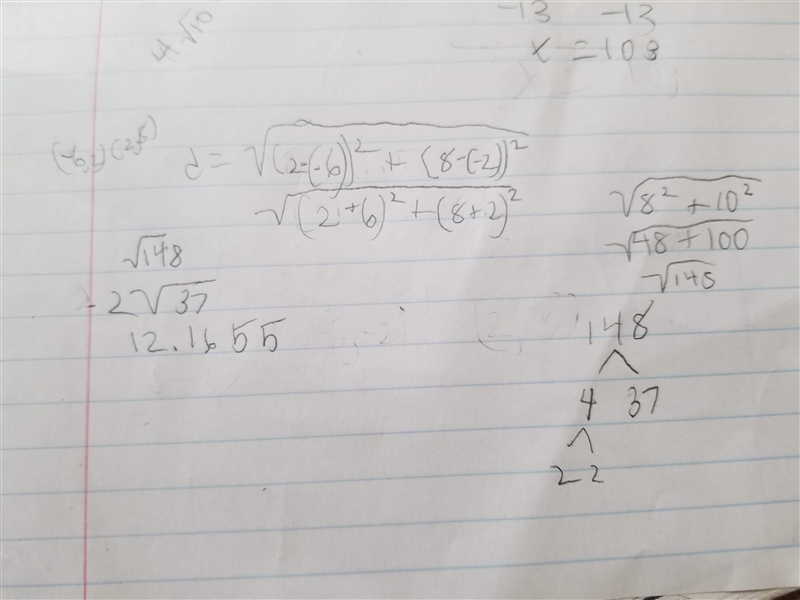 -13 -13
x = 103
4√10
d = √(2-(-6))² + (8-(-2))²
√(2+6)² + (8+2)²
√8² + 10²
√48 + 100
√148
√148
2√37
12.1655
148
4 37
2 2